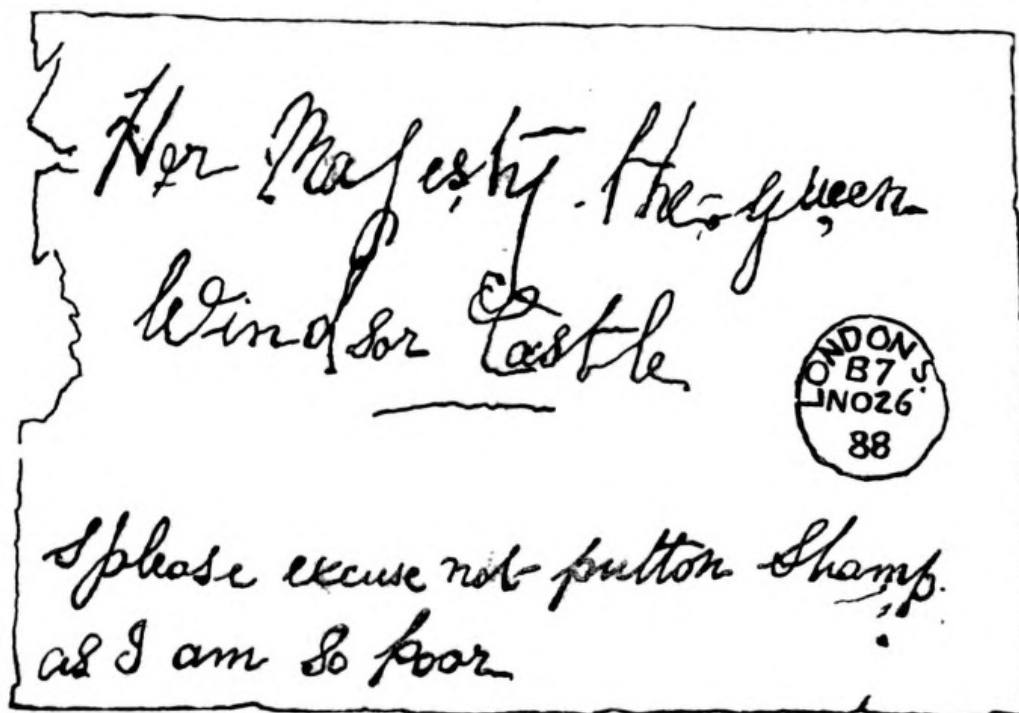 Her Majesty. the queen
Windsor Castle
LONDON S.
B7
NO26
88
please excuse not putton Stamp.
as I am so poor